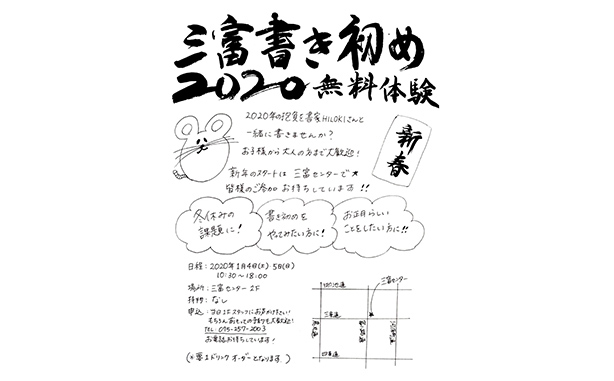 三富書き初め
2020 無料体験
2020年の抱負を書家HILOKIさんと
一緒に書きませんか？
お子様から大人の方まで大歓迎！
新年のスタートは三富センターで★
皆様のご参加お待ちしています!!
新春
冬休みの
課題に！
書き初めを
やってみたい方に！
お正月らしい
ことをしたい方に!!
日程：2020年1月4日(土)・5日(日)
10:30～18:00
場所：三富センター 2F
持物：なし
申込：当日1Fスタッフにお声がけ下さい！
もちろんあらかじめの予約も大歓迎！
TEL 075-257-2003
お電話お待ちしています！
(※要1ドリンクオーダーとなります。)
三富センター
六角通
三条通
四条通